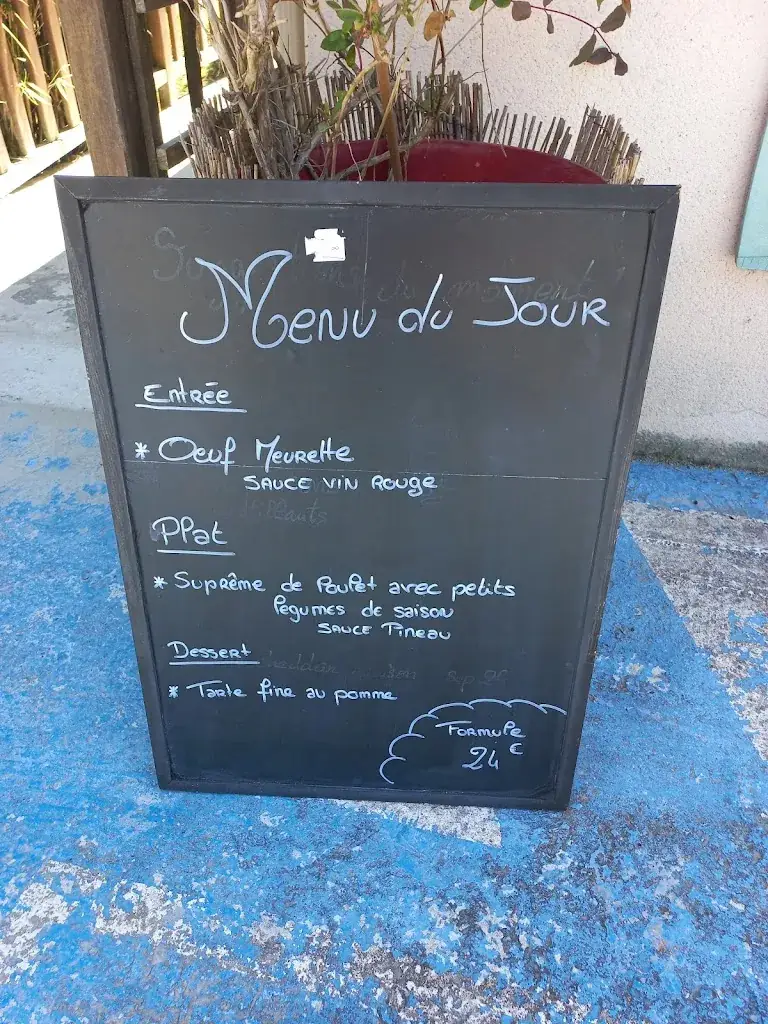 Menu du Jour
Entrée
* Oeuf Meurette
sauce vin rouge
Plat
* Suprême de Poulet avec petits
légumes de saison
sauce Pineau
Dessert
* Tarte fine au pomme
Formule
24 €